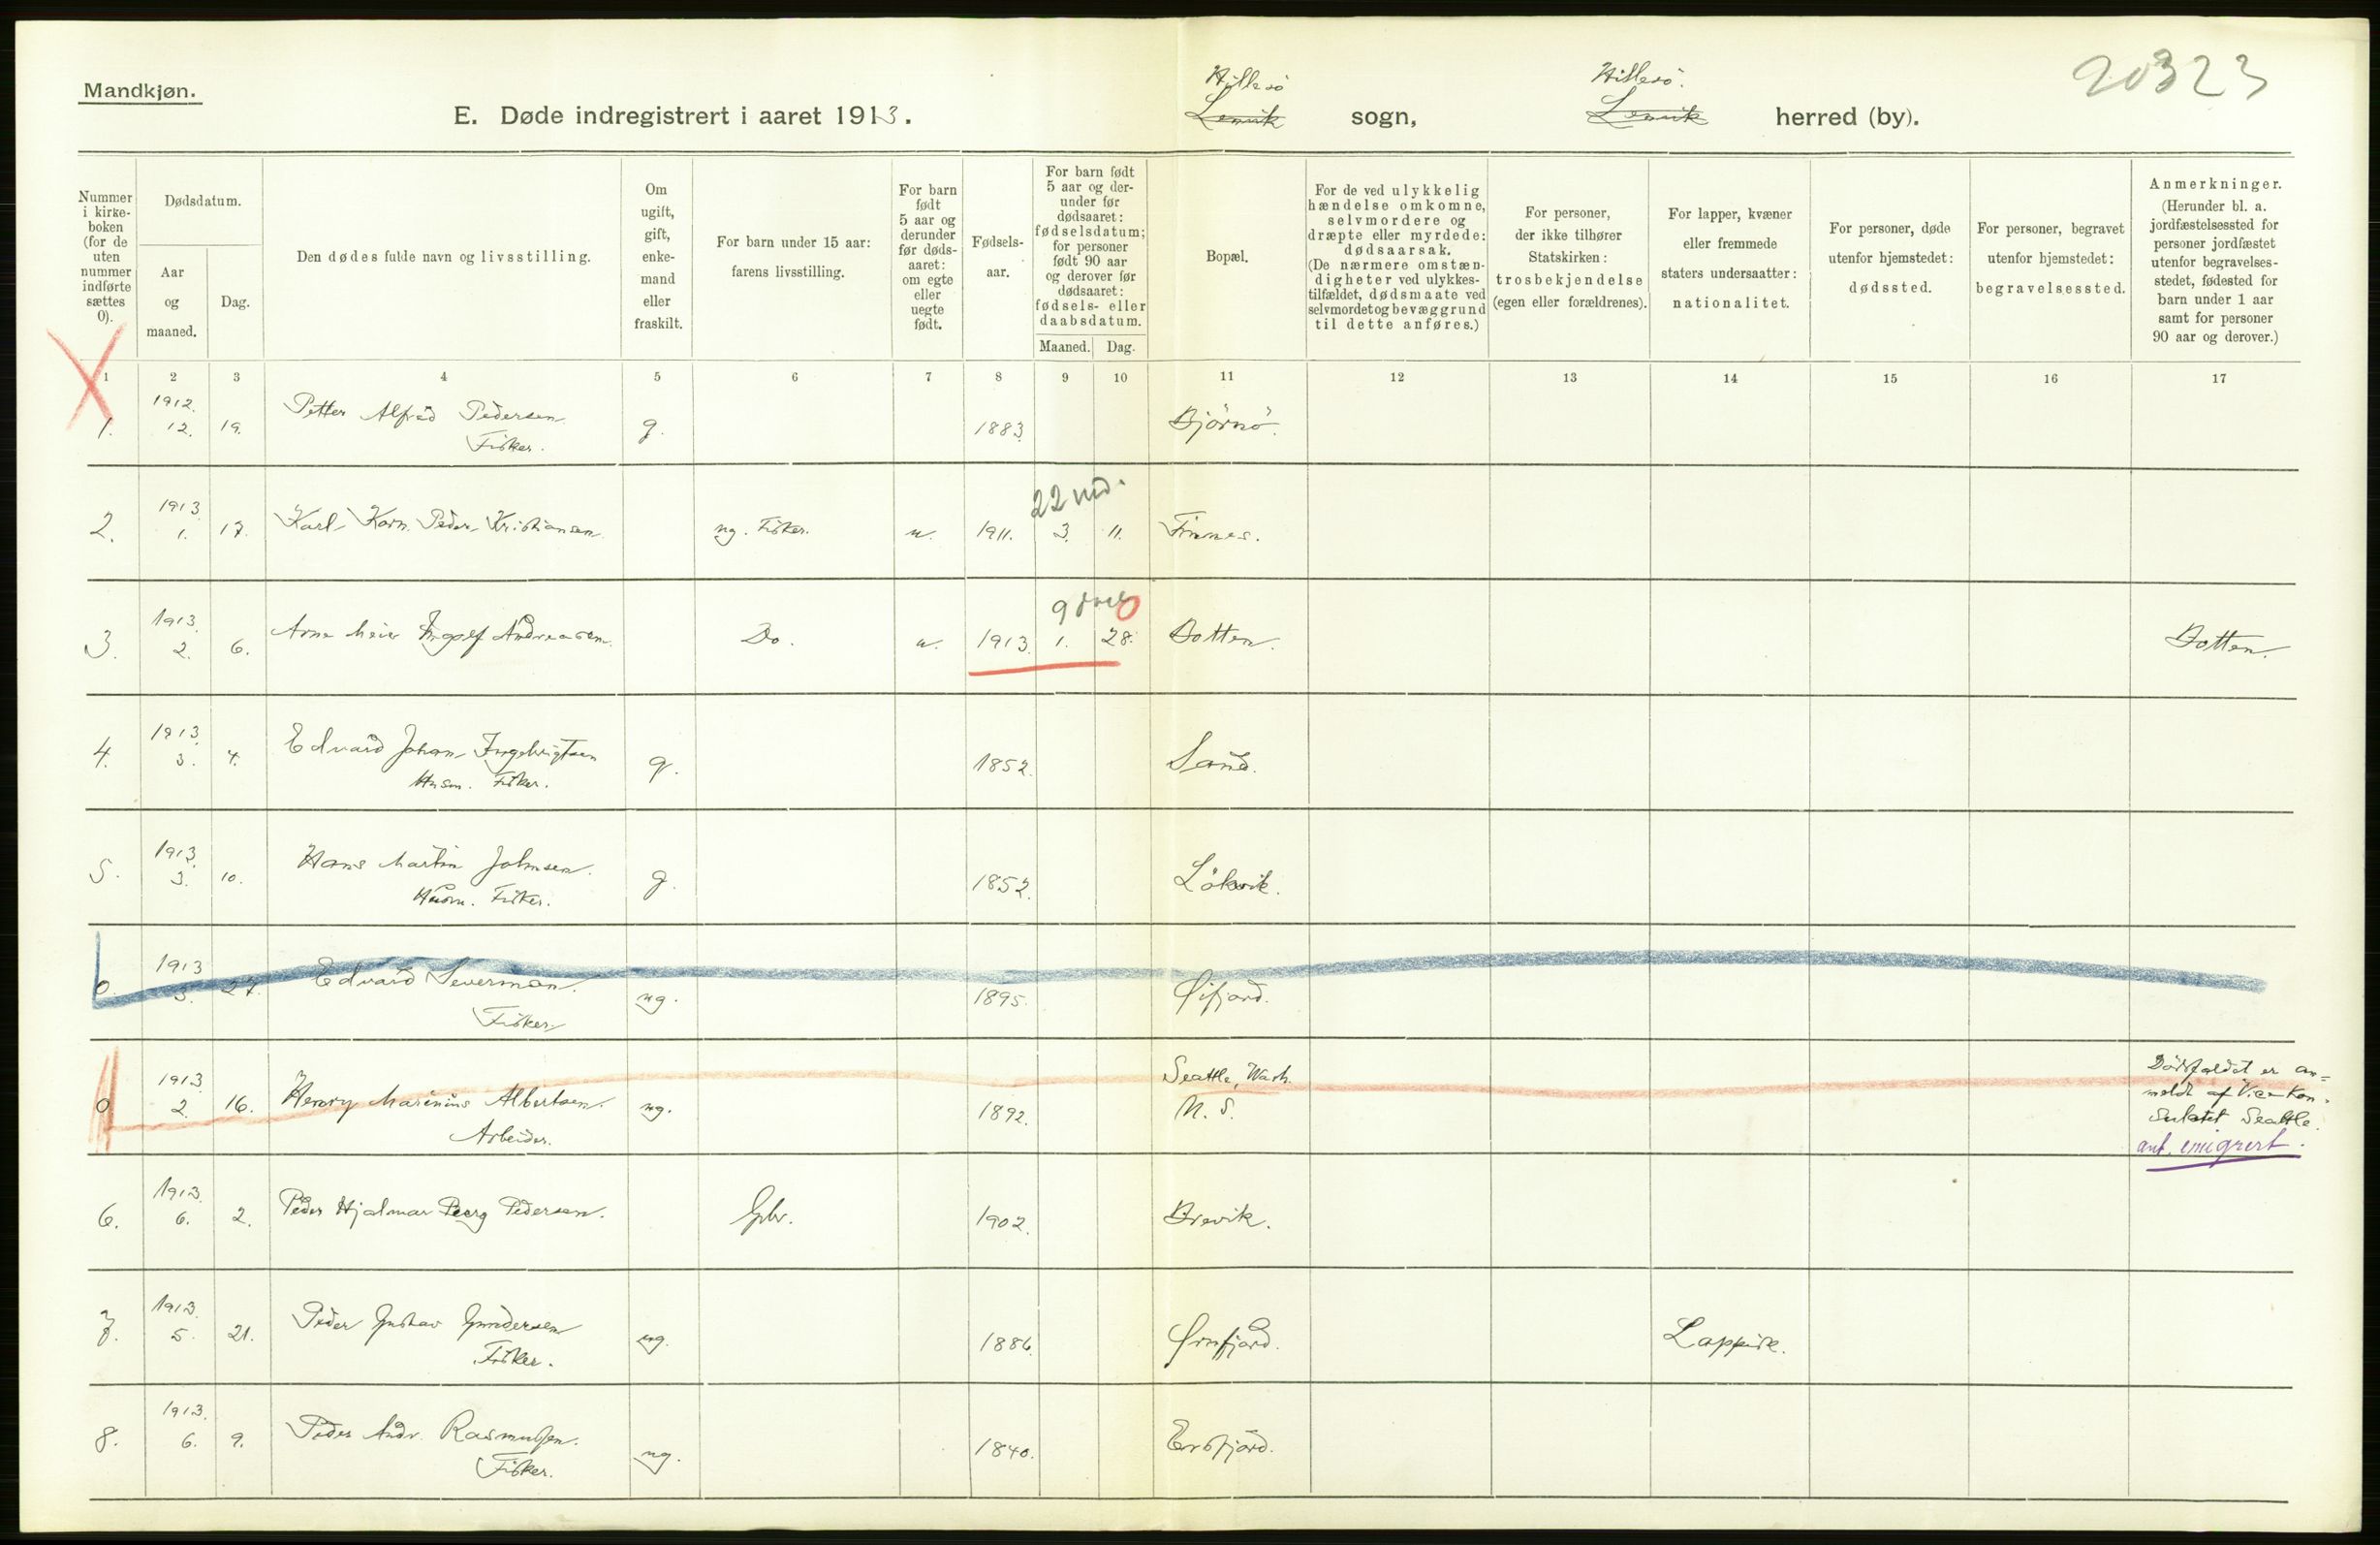 Mandkjøn.
E. Døde indregistrert i aaret 1913.
Hillesö
Lenvik
sogn,
Hillesö.
Lenvik
herred (by).
20323
Nummer i kirke-boken (for de uten nummer indførte sættes 0).
Dødsdatum.
Aar og maaned.
Dag.
Den dødes fulde navn og livsstilling.
Om ugift, gift, enke-mand eller fraskilt.
For barn under 15 aar: farens livsstilling.
For barn født 5 aar og derunder før døds-aaret: om egte eller uegte født.
Fødsels-aar.
For barn født 5 aar og der-under før dødsaaret: fødselsdatum; for personer født 90 aar og derover før dødsaaret: fødsels- eller daabsdatum.
Maaned.
Dag.
Bopæl.
For de ved ulykkelig hændelse omkomne, selvmordere og dræpte eller myrdede: dødsaarsak. (De nærmere omstæn-digheter ved ulykkes-tilfældet, dødsmaate ved selvmordet og bevæggrund til dette anføres.)
For personer, der ikke tilhører Statskirken: trosbekjendelse (egen eller forældrenes).
For lapper, kvæner eller fremmede staters undersaatter: nationalitet.
For personer, døde utenfor hjemstedet: dødssted.
For personer, begravet utenfor hjemstedet: begravelsessted.
Anmerkninger. (Herunder bl. a. jordfæstelsessted for personer jordfæstet utenfor begravelses-stedet, fødested for barn under 1 aar samt for personer 90 aar og derover.)
1 2 3 4 5 6 7 8 9 10 11 12 13 14 15 16 17
1912.
1. 12. 19. Petter Alfred Pedersen g. 1883. Björnö.
Fisker.
22 md.
1913
2. 1. 17. Karl Korn. Peder Kristiansen ug. Fisker. u. 1911. 3. 11. Finnes.
9 0
1913.
3. 2. 6. Arne Meier Ingolf Andreasen Do. u. 1913. 1. 28. Botten. Botten.
1913
4. 3. 4. Edvard Johan Ingebrigtsen g. 1852. Sand.
Husm. Fisker.
1913
5. 3. 10. Hans Martin Johnsen. g. 1852. Lökvik.
Husm. Fisker.
1913
0. 3. 27. Edvard Severinsen. ug. 1895. Øifjord.
Fisker
1913 Seattle, Wash.
0 2. 16. Henry Marinius Albertsen. ug. 1892. N. S.
Arbeider.
Dödsfaldet er an=
meldt af Vice-Kon.
sulatet Seattle.
ant. emigrert.
1913.
6. 6. 2. Peder Hjalmar Berg Pedersen. Gbr. 1902. Brevik.
1913.
7. 5. 21. Peder Gustav Gundersen ug. 1886. Ørnfjord. Lappisk.
Fisker.
1913.
8. 6. 9. Peder Andr. Rasmussen. ug. 1840. Ersfjord.
Fisker.